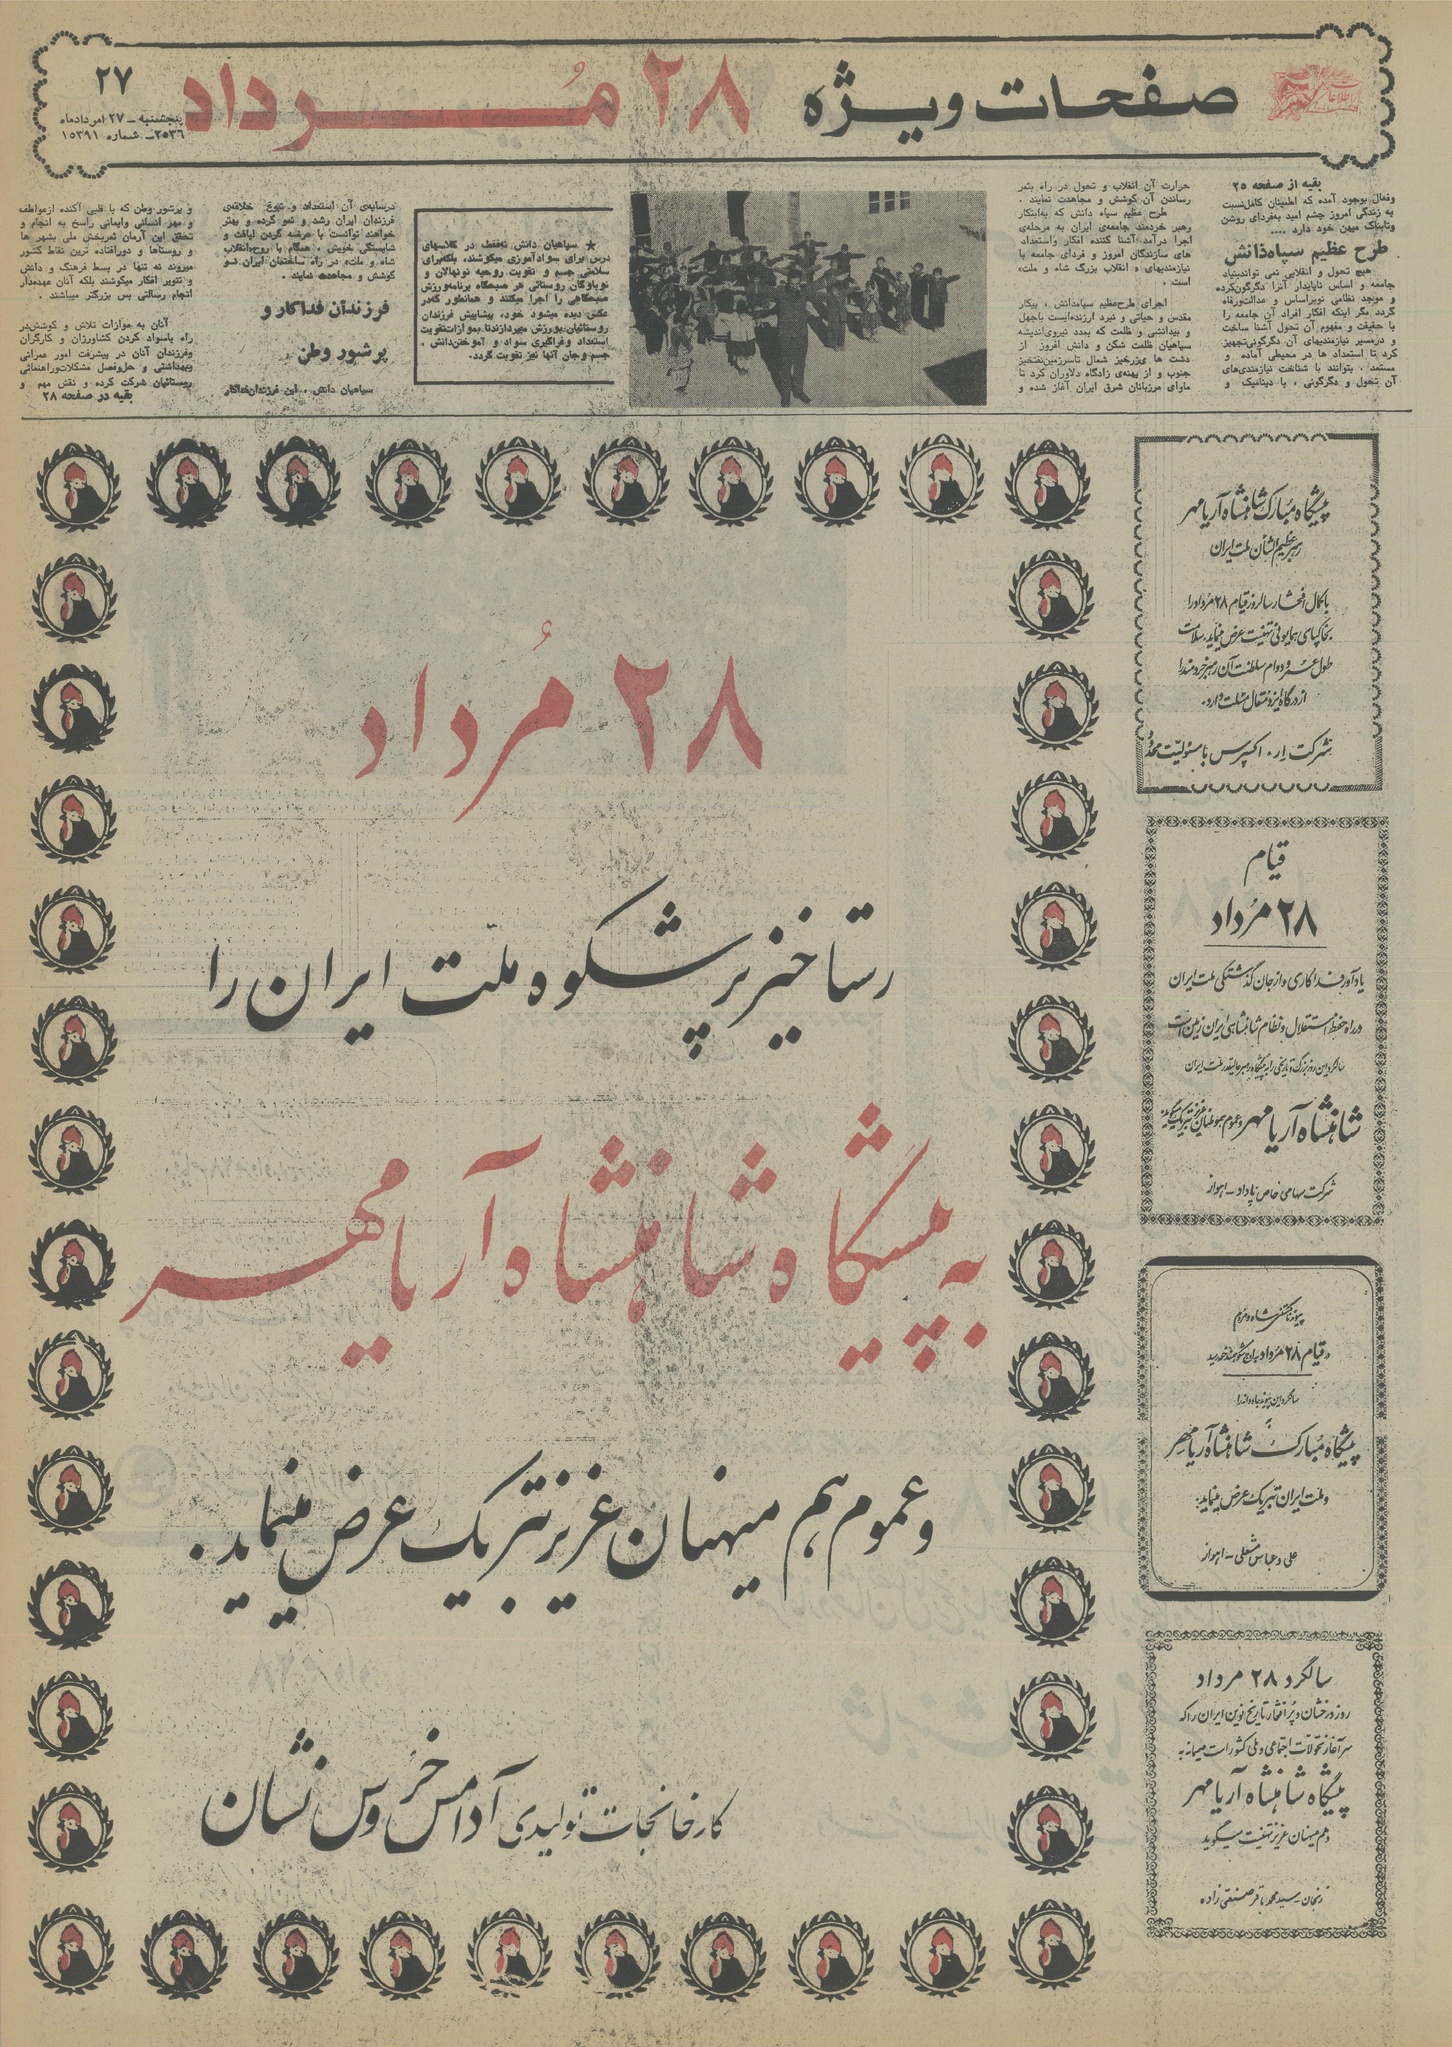 صفحات ویژه ۲۸ مُرداد
۲۷
پنجشنبه – ۲۷ امردادماه
۲۵۳۶ – شماره ۱۵۳۹۱
بقیه از صفحه ۲۵
وفعال بوجود آمده که اطمینان کامل‌نسبت
به زندگی امروز چشم امید به‌فردای روشن
وتابناک میهن خود دارد ....
طرح عظیم سپاه‌دانش
هیچ تحول و انقلابی نمی تواندبنیاد
جامعه و اساس ناپایدار آنرا دگرگون‌کرده
و موجد نظامی نوبراساس و عدالت‌ورفاه
گردد مگر اینکه افکار افراد آن جامعه را
با حقیقت و مفهوم آن تحول آشنا ساخت
و درمسیر نیازمندیهای آن دگرگونی‌تجهیز
کرد تا استعداد ها در محیطی آماده و
مستعد ، بتوانند با شناخت نیازمندی‌های
آن تحول و دگرگونی ، با دینامیک و
حرارت آن انقلاب و تحول در راه بثمر
رساندن آن کوشش و مجاهدت نمایند .
طرح عظیم سپاه دانش که به‌ابتکار
رهبر خردمند جامعه‌ی ایران به مرحله‌ی
اجرا درآمد آشنا کننده افکار واستعداد
های سازندگان امروز و فردای جامعه با
نیازمندیهای « انقلاب بزرگ شاه و ملت»
است .
اجرای طرح‌عظیم سپاه‌دانش ، پیکار
مقدس و حیاتی و نبرد ارزنده‌ایست باجهل
و بیدانشی و ظلمت که بمدد نیروی‌اندیشه
سپاهیان ظلمت شکن و دانش افروز از
دشت ها ی‌زرخیز شمال تاسرزمین‌تفتخیز
جنوب و از پهنه‌ی زادگاه دلاوران کرد تا
ماوای مرزبانان شرق ایران آغاز شده و
★ سپاهیان دانش نه‌فقط در کلاسهای
درس برای سوادآموزی میکوشند، بلکه‌برای
سلامتی جسم و تقویت روحیه نونهالان و
نوباوگان روستائی هر صبحگاه برنامه‌ورزش
صبحگاهی را اجرا میکنند و همانطور که‌در
عکس دیده میشود خود، پیشاپیش فرزندان
روستائیان بورزش میپردازندتا بموازات‌تقویت
استعداد وفراگیری سواد و آموختن‌دانش ،
جسم وجان آنها نیز تقویت گردد.
درسایه‌ی آن استعداد و نبوغ خلاقه‌ی
فرزندان ایران رشد و نمو کرده و بهتر
خواهند توانست با عرضه کردن لیاقت و
شایستگی خویش ، همگام با روح‌«انقلاب
شاه و ملت» در راه ساختمان ایران نـو
کوشش و مجاهدت نمایند .
فرزندان فداکار و
پرشور وطن
سپاهیان دانش ، این فرزندان‌فداکار
و پرشور وطن که با قلبی آکنده ازعواطف
و مهر انسانی وایمانی راسخ به انجام و
تحقق این آرمان ثمربخش ملی بشهر ها
و روستاها و دورافتاده ترین نقاط کشور
میروند نه تنها در بسط فرهنگ و دانش
و تنویر افکار میکوشند بلکه آنان عهده‌دار
انجام رسالتی بس بزرگتر میباشند .
آنان به موازات تلاش و کوشش‌در
راه باسواد کردن کشاورزان و کارگران
وفرزندان آنان در پیشرفت امور عمرانی
وبهداشتی و حل‌وفصل مشکلات‌وراهنمائی
روستائیان شرکت کرده و نقش مهم و
بقیه در صفحه ۲۸
۲۸ مُرداد
رستاخیز پرشکوه ملّت ایران را
به پیشگاه شاهنشاه آریامهر
و عموم هم میهنان عزیز تبریک عرض مینماید .
کارخانجات تولیدی آدامس خروس نشان
پیشگاه مبارک شاهنشاه آریامهر
رهبر عظیم الشأن ملت ایران
با کمال افتخار سالروز قیام ۲۸ مرداد را
بخاکپای همایونی تهنیت عرض مینماید. سلامت
طول عمر و دوام سلطنت آن رهبر خردمند را
از درگاه ایزد متعال مسئلت دارد.
شرکت ار . اکسپرس با مسئولیت محدود
قیام
۲۸ مُرداد
یادآور فداکاری و از جان گذشتگی ملت ایران
در راه حفظ استقلال و نظام شاهنشاهی ایران زمین است
سالگرد این روز بزرگ و تاریخی را به پیشگاه رهبر عالیقدر ملت ایران
شاهنشاه آریامهر و عموم هموطنان عزیز تبریک میگوید
شرکت سهامی خاص پاداد – اهواز
پیوند ناگسستنی شاه و مردم
در قیام ۲۸ مُرداد به اوج شکوهمند خود رسید
سالگرد این پیوند جاودانه را
به
پیشگاه مبارک شاهنشاه آریامهر
و ملت ایران تبریک عرض مینماید.
علی و عباس – اهواز
سالگرد ۲۸ مرداد
روز درخشان و پُر افتخار تاریخ نوین ایران را که
سرآغاز تحولات اجتماعی و ملی کشور است صمیمانه به
پیشگاه شاهنشاه آریامهر
و هم میهنان عزیز تهنیت میگوید
زنجان – سید محمد باقر صنعتی زاده